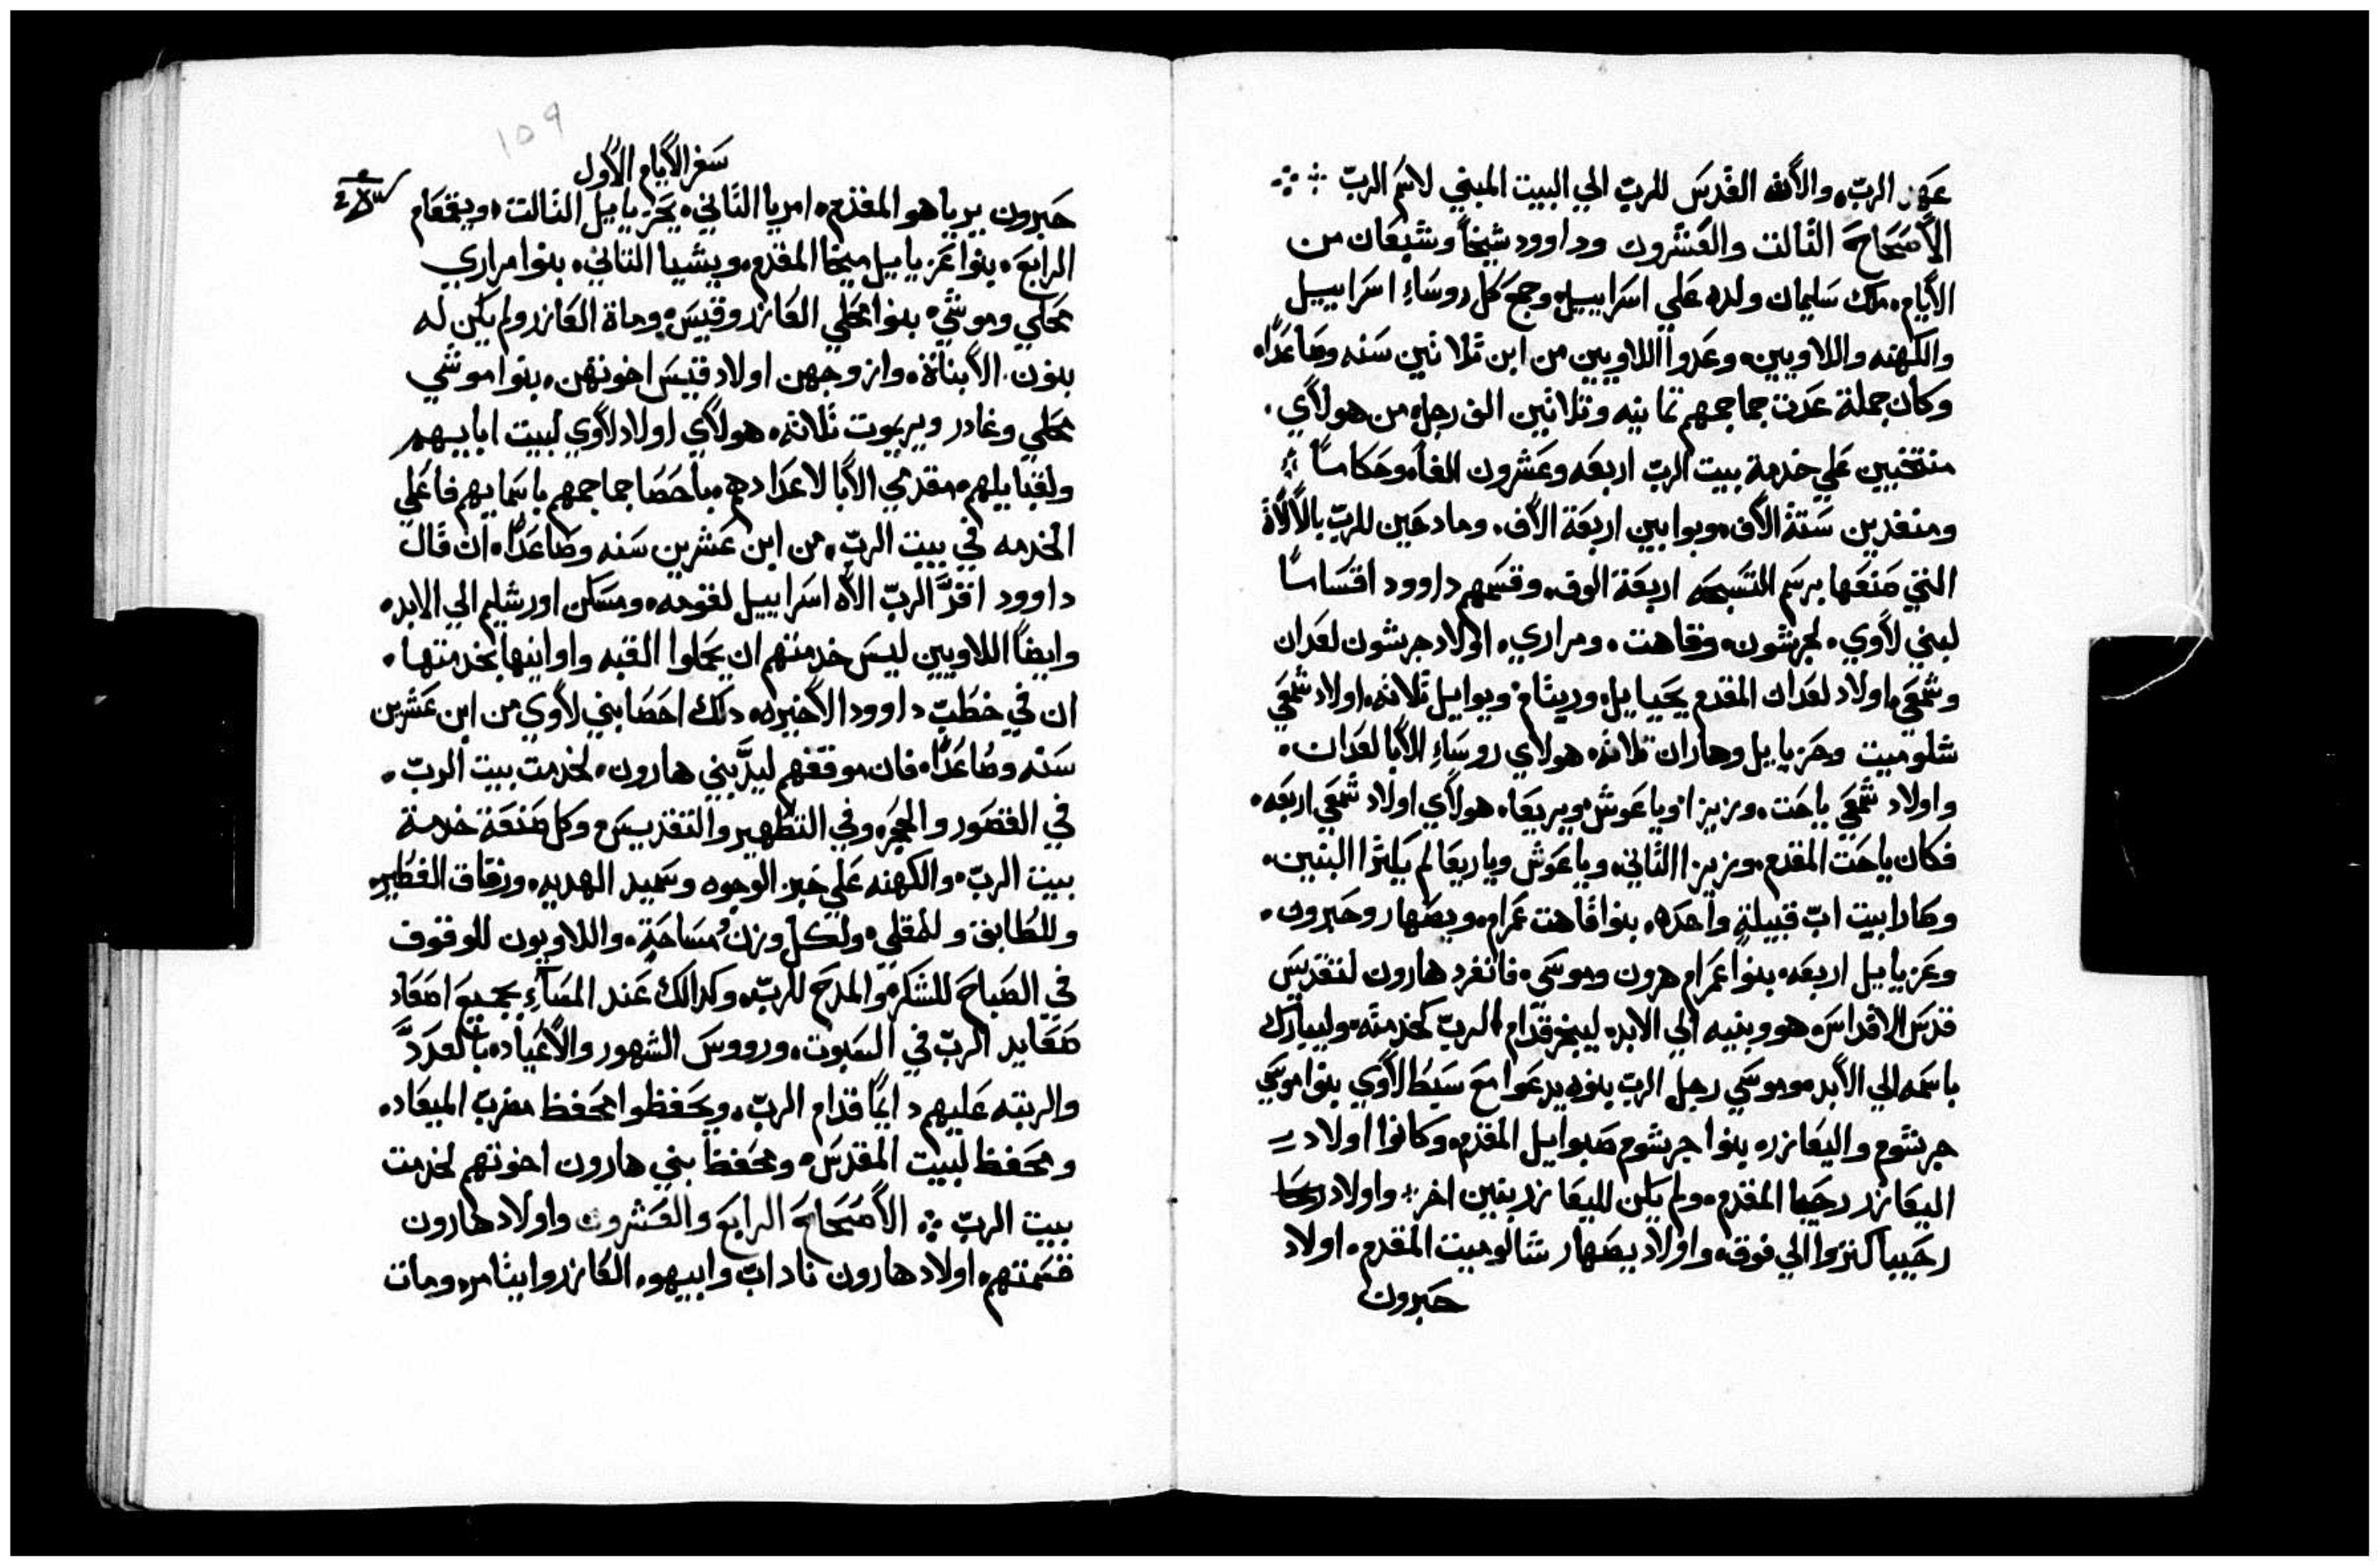 عهد الرب، والأنيه القدس للرب الي البيت المبني لاسم الرب
الأصحاح الثالث والعشرون وداوود شيخاً وشبعان من
الأيام، ملك سليمان ولده علي اسراييل، وجمع كل روساء اسراييل
والكهنه واللاويين، وعدوا اللاويين من ابن ثلاثين سنه وصاعداً،
وكان جملة عدت جماجمهم تمانيه وثلاثين الف رجل، من هولاي،
منتخبين علي خدمة بيت الرب اربعه وعشرون الفاً، وحكاماً
ومنفدين ستة الاف، وبوابين اربعة الاف، ومادحين للرب بالألاة
التي صنعها برسم التسبحه اربعة الوف، وقسمهم داوود اقساماً
لبني لاوي، لجرشون، وقاهت، ومراري، اولاد جرشون لعدان
وشمعي، اولاد لعدان المقدم يحياييل، وريتام، ويواييل ثلاثه، اولاد شمعي
شلوميت وحزياييل وهاران ثلاثه، هولاي روساء الأبا لعدان،
واولاد شمعي ياحت، وزيزا، وياعوش، ويريعا، هولاي اولاد شمعي اربعه،
فكان ياحت المقدم، وزيزا الثاني، وياعوش وياريعا لم يكثرا البنين،
وصارا بيت اب قبيلةٍ واحده، بنوا قاهت عمرام، ويصهار وحبرون،
وعزياييل اربعه، بنوا عمرام هرون وموسي، فانفرد هارون لتقديس
قدس الاقداس، هو وبنيه الي الابد، ليبخر قدام الرب لخدمته، وليبارك
باسمه الي الأبد، وموسي رجل الرب بنوه يدعوا مع سبط لاوي بنوا موسي
جرشوم واليعازر، بنوا جرشوم صبواييل المقدم، وكانوا اولاد
اليعازر رحبيا المقدم، ولم يكن لليعازر بنين اخر، واولاد رحبيا
رحبيا كثروا الي فوق، واولاد يصهار شالوميت المقدم، اولاد
حبرون
١٥٩
سفر الأيام الأول
حبرون يريا هو المقدم، امريا الثاني، يحزياييل الثالث، ويقمعام
الرابع، بنوا عزياييل ميخا المقدم، ويشيا الثاني، بنوا مراري
محلي وموشي، بنوا محلي العازر وقيس، وماة العازر ولم يكن له
بنون، الا بناة، وازوجهن اولاد قيس اخوتهن، بنوا موشي
محلي وغادر ويريموت ثلاثه، هولاي اولاد لاوي لبيت اباييهم
ولقبايلهم، مقدمي الأبا لاعدادهم، باحصا جماجمهم باسماييهم فاعلي
الخدمه في بيت الرب، من ابن عشرين سنه وصاعداً، ان قال
داوود اقرَّ الرب الاه اسراييل لقومه، ومسكن اورشليم الي الابد،
وايضاً اللاويين ليس خدمتهم ان يحملوا القبه واوانيها بخدمتها،
ان في خطب داوود الأخيره، دلك احصا بني لاوي من ابن عشرين
سنه وصاعداً، فان موقفهم ليدَّ بني هارون، لخدمت بيت الرب،
في القصور والحجر، وفي التطهير والتقديس، وكل صنعة خدمة
بيت الرب، والكهنه علي خبز الوجوه وسميد الهديه، ورقاق الفطير،
وللطابق وللمقلي، ولكل وزن ومساحةٍ، واللاويون للوقوف
في الصباح للشكر والمدح للرب، وكدالك عند المساء، بجميع اصعاد
صعايد الرب في السبوت، ورووس الشهور والأعياد، بالعدد
والرتبه عليهم دايماً قدام الرب، ويحفظوا محفظ مضرب الميعاد،
ومحفظ لبيت المقدس، ومحفظ بني هارون اخوتهم لخدمت
بيت الرب الأصحاح الرابع والعشرون واولاد هارون
قسمتهم، اولاد هارون ناداب وابيهو، العازر وايثامر، ومات